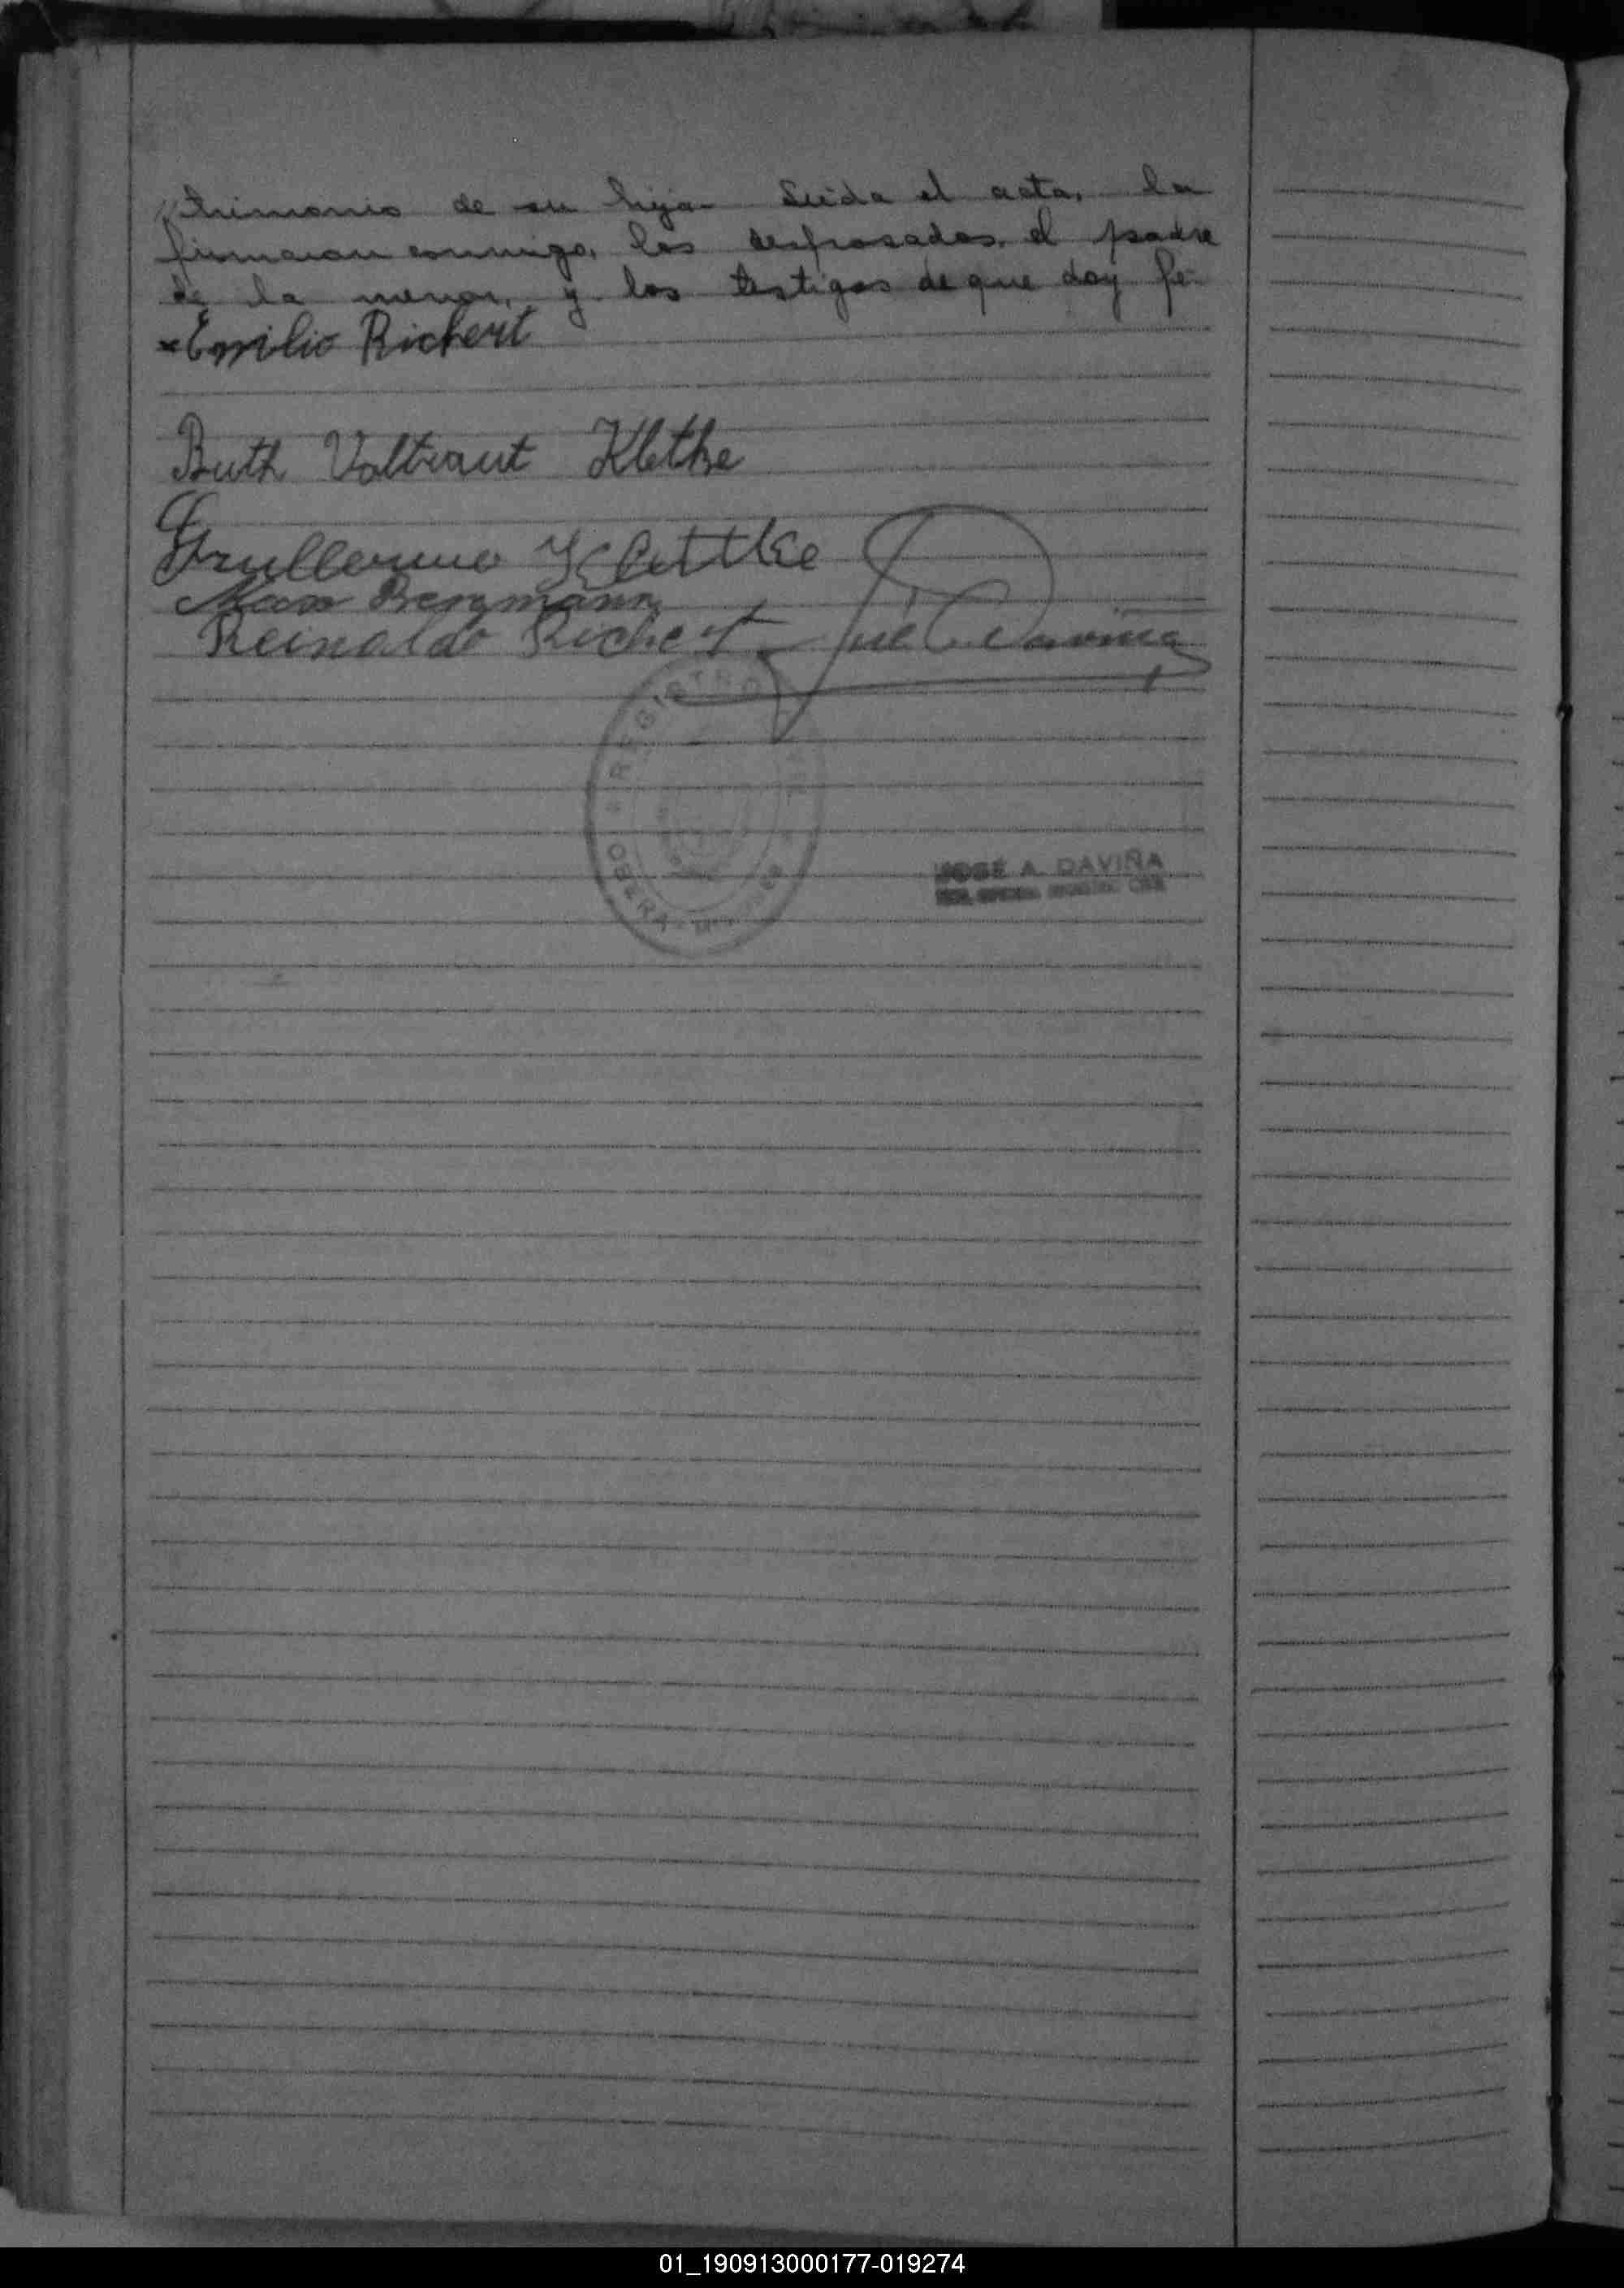 trimonio de su hija- Leida el acta, la
firmaran conmigo, los desposados, el padre
de la menor, y los testigos de que doy fe-
Emilio Richert
Ruth Valtraut Klethe
Guillermo Klettke
Max Bergmann
Reinaldo Richert José A. Daviña
REGISTRO
OBERA - MISIONES
JOSÉ A. DAVIÑA
01_190913000177-019274